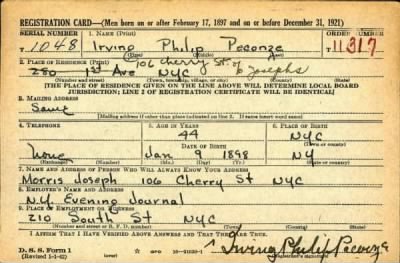 REGISTRATION CARD—(Men born on or after February 17, 1897 and on or before December 31, 1921)
SERIAL NUMBER 1. NAME (Print) ORDER NUMBER
T 1048 Irving Philip Peconze T 11317
(First) (Middle) (Last)
106 Cherry St.
2. PLACE OF RESIDENCE (Print) Josephs
280 1st Ave NYC
(Number and street) (Town, township, village, or city) (County) (State)
[THE PLACE OF RESIDENCE GIVEN ON THE LINE ABOVE WILL DETERMINE LOCAL BOARD
JURISDICTION; LINE 2 OF REGISTRATION CERTIFICATE WILL BE IDENTICAL]
3. MAILING ADDRESS
Same
[Mailing address if other than place indicated on line 2. If same insert word same]
4. TELEPHONE 5. AGE IN YEARS 6. PLACE OF BIRTH
44 NYC
DATE OF BIRTH (Town or county)
None Jan 9 1898 NY
(Exchange) (Number) (Mo.) (Day) (Yr.) (State or country)
7. NAME AND ADDRESS OF PERSON WHO WILL ALWAYS KNOW YOUR ADDRESS
Morris Joseph 106 Cherry St NYC
8. EMPLOYER'S NAME AND ADDRESS
N.Y. Evening Journal
9. PLACE OF EMPLOYMENT OR BUSINESS
210 South St NYC
(Number and street or R. F. D. number) (Town) (County) (State)
I AFFIRM THAT I HAVE VERIFIED ABOVE ANSWERS AND THAT THEY ARE TRUE.
D. S. S. Form 1
(Revised 1-1-42) (over) Irving Philip Peconze